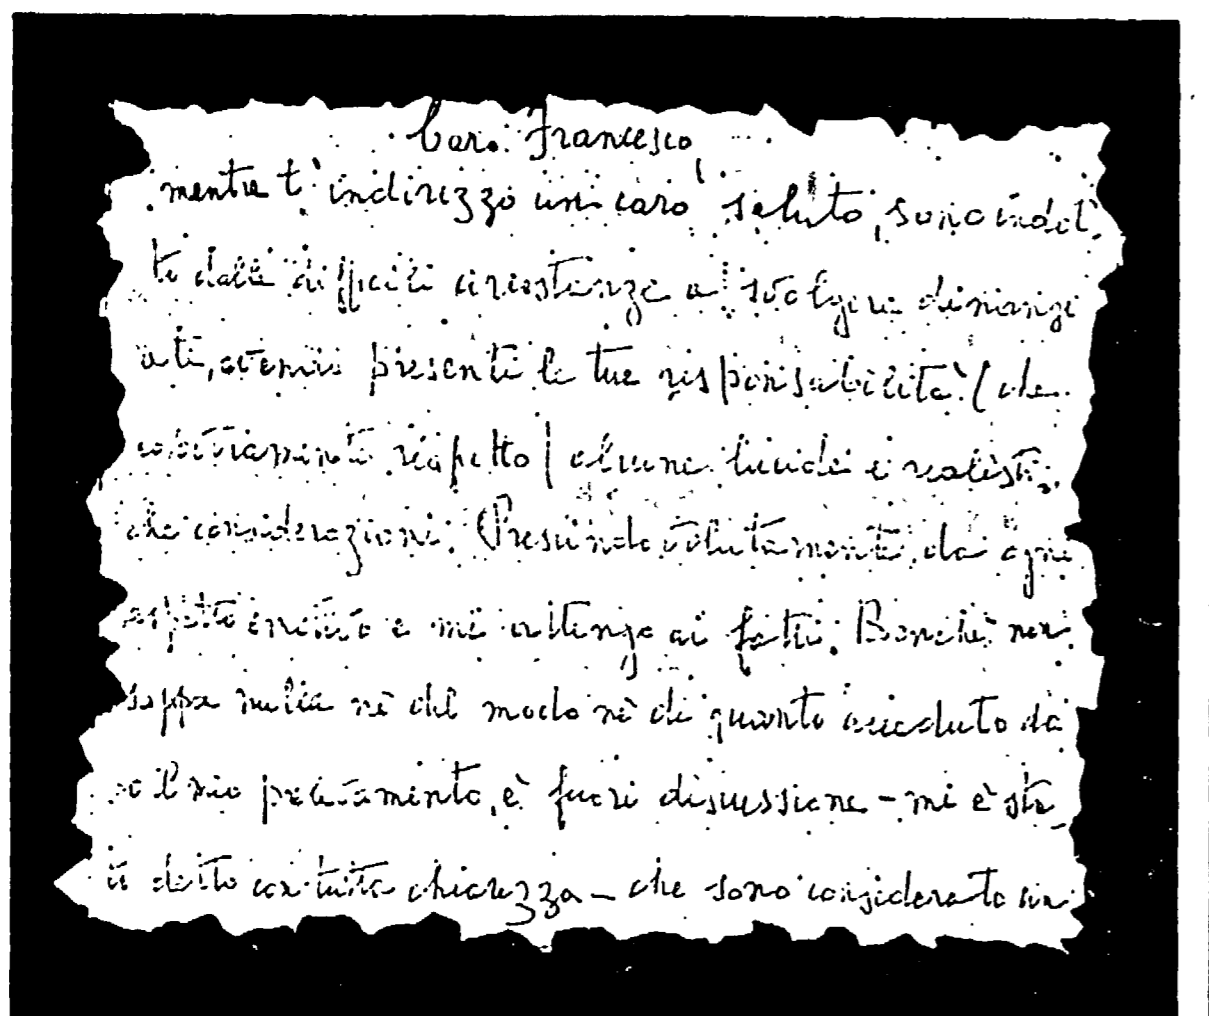 Caro Francesco,
mentre t'indirizzo un caro saluto, sono indot
to dalle difficili circostanze a svolgere dinanzi
a te, avendo presenti le tue responsabilità (che
ovviamente rispetto) alcune lucide e realisti
che considerazioni. Prescindo volutamente da ogni
aspetto emotivo e mi attengo ai fatti. Benché non
sappia nulla né del modo né di quanto accaduto do
po il mio prelevamento, è fuori discussione - mi è sta
to detto con tutta chiarezza - che sono considerato un